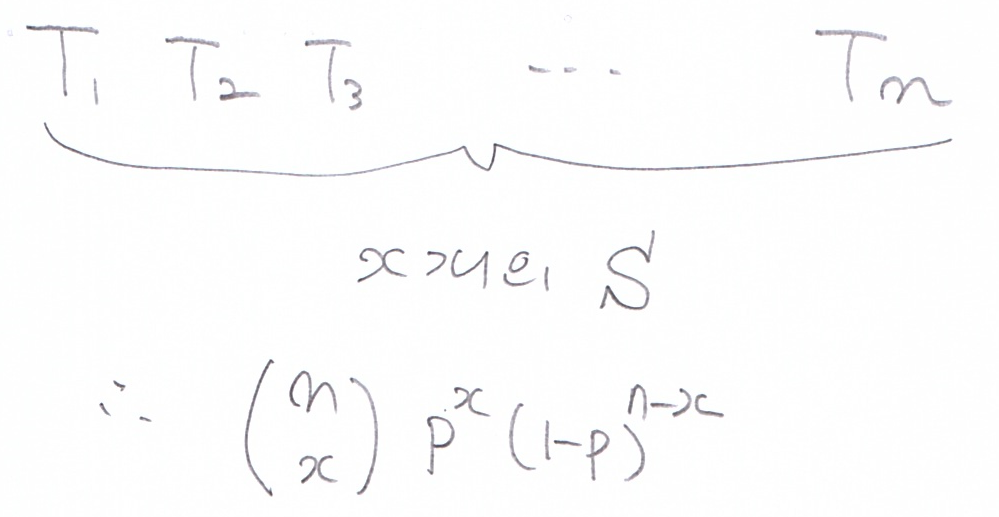 T₁ T₂ T₃ ... Tₙ
x개의 S
∴ (n x) p^x (1-p)^{n-x}